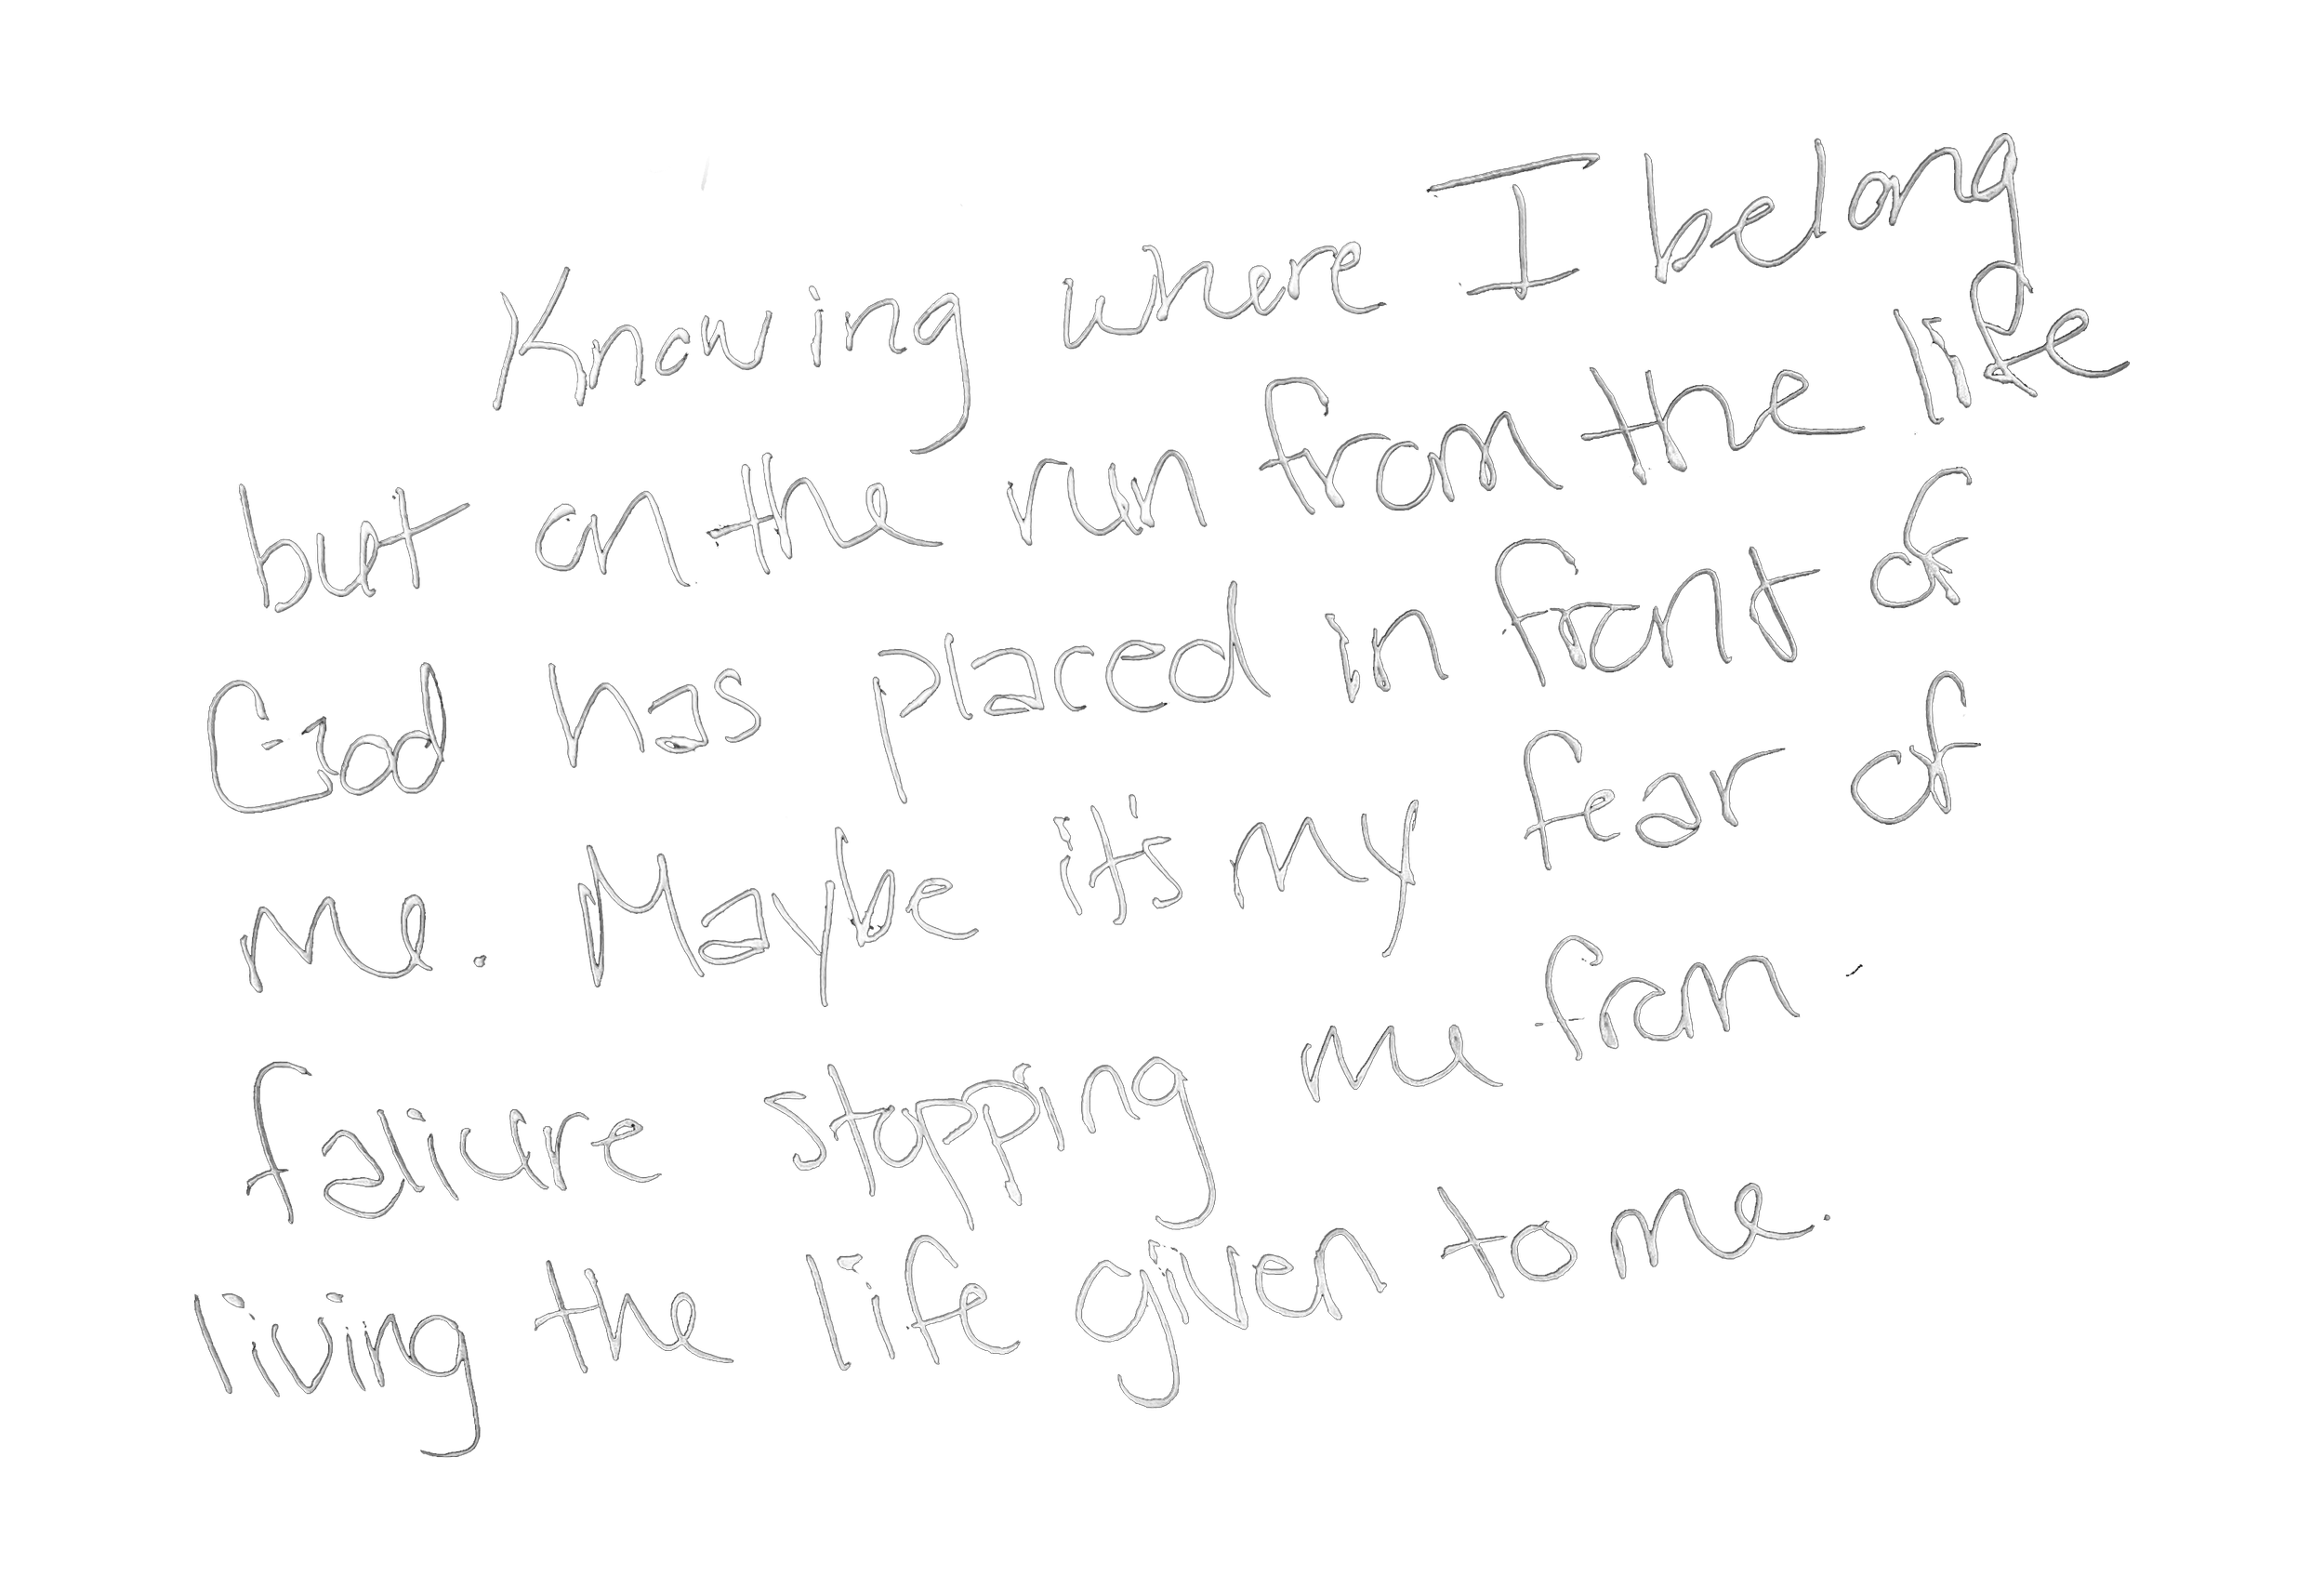 Knowing where I belong
but on the run from the life
God has placed in front of
me. Maybe it's my fear of
faliure stopping me from
living the life given to me.